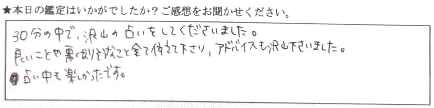 ★本日の鑑定はいかがでしたか？ご感想をお聞かせください。
30分の中で、沢山の占いをしてくださいました。
良いことや悪くなりそうなこと全て伝えて下さり、アドバイスも沢山下さいました。
占い中も楽しかったです。